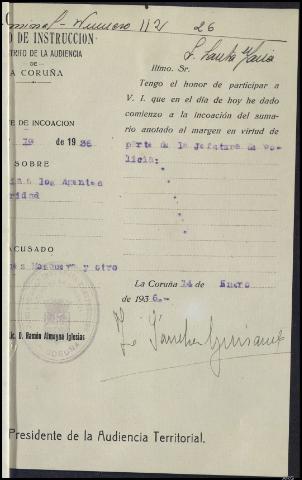 Numero 112 26
O DE INSTRUCCION
TRITO DE LA AUDIENCIA
DE
A CORUÑA
S. Santa Maria
Iltmo. Sr.
Tengo el honor de participar a
V. I. que en el dia de hoy he dado
comienzo a la incoación del suma-
rio anotado al margen en virtud de
parte de la jefatura de po-
licia:
TE DE INCOACION
de 1936
SOBRE
a los Agentes
ridad
ACUSADO
Mosquera y otro
La Coruña 14 de Enero
de 1936.-
Lic. D. Ramón Almoyna Iglesias
CORUÑA
Sánchez
Presidente de la Audiencia Territorial.